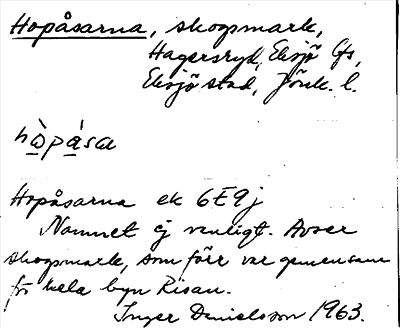 Hopåsarna, skogsmark,
Hagersryd, Eksjö Gfs,
Eksjö stad, Jönk. l.
hò̲pá̲sa
Hopåsarna ek 6E9j
Namnet ej vanligt. Avser
skogsmark, som förr var gemensam
för hela byn Risan.
Inger Danielsson 1963.